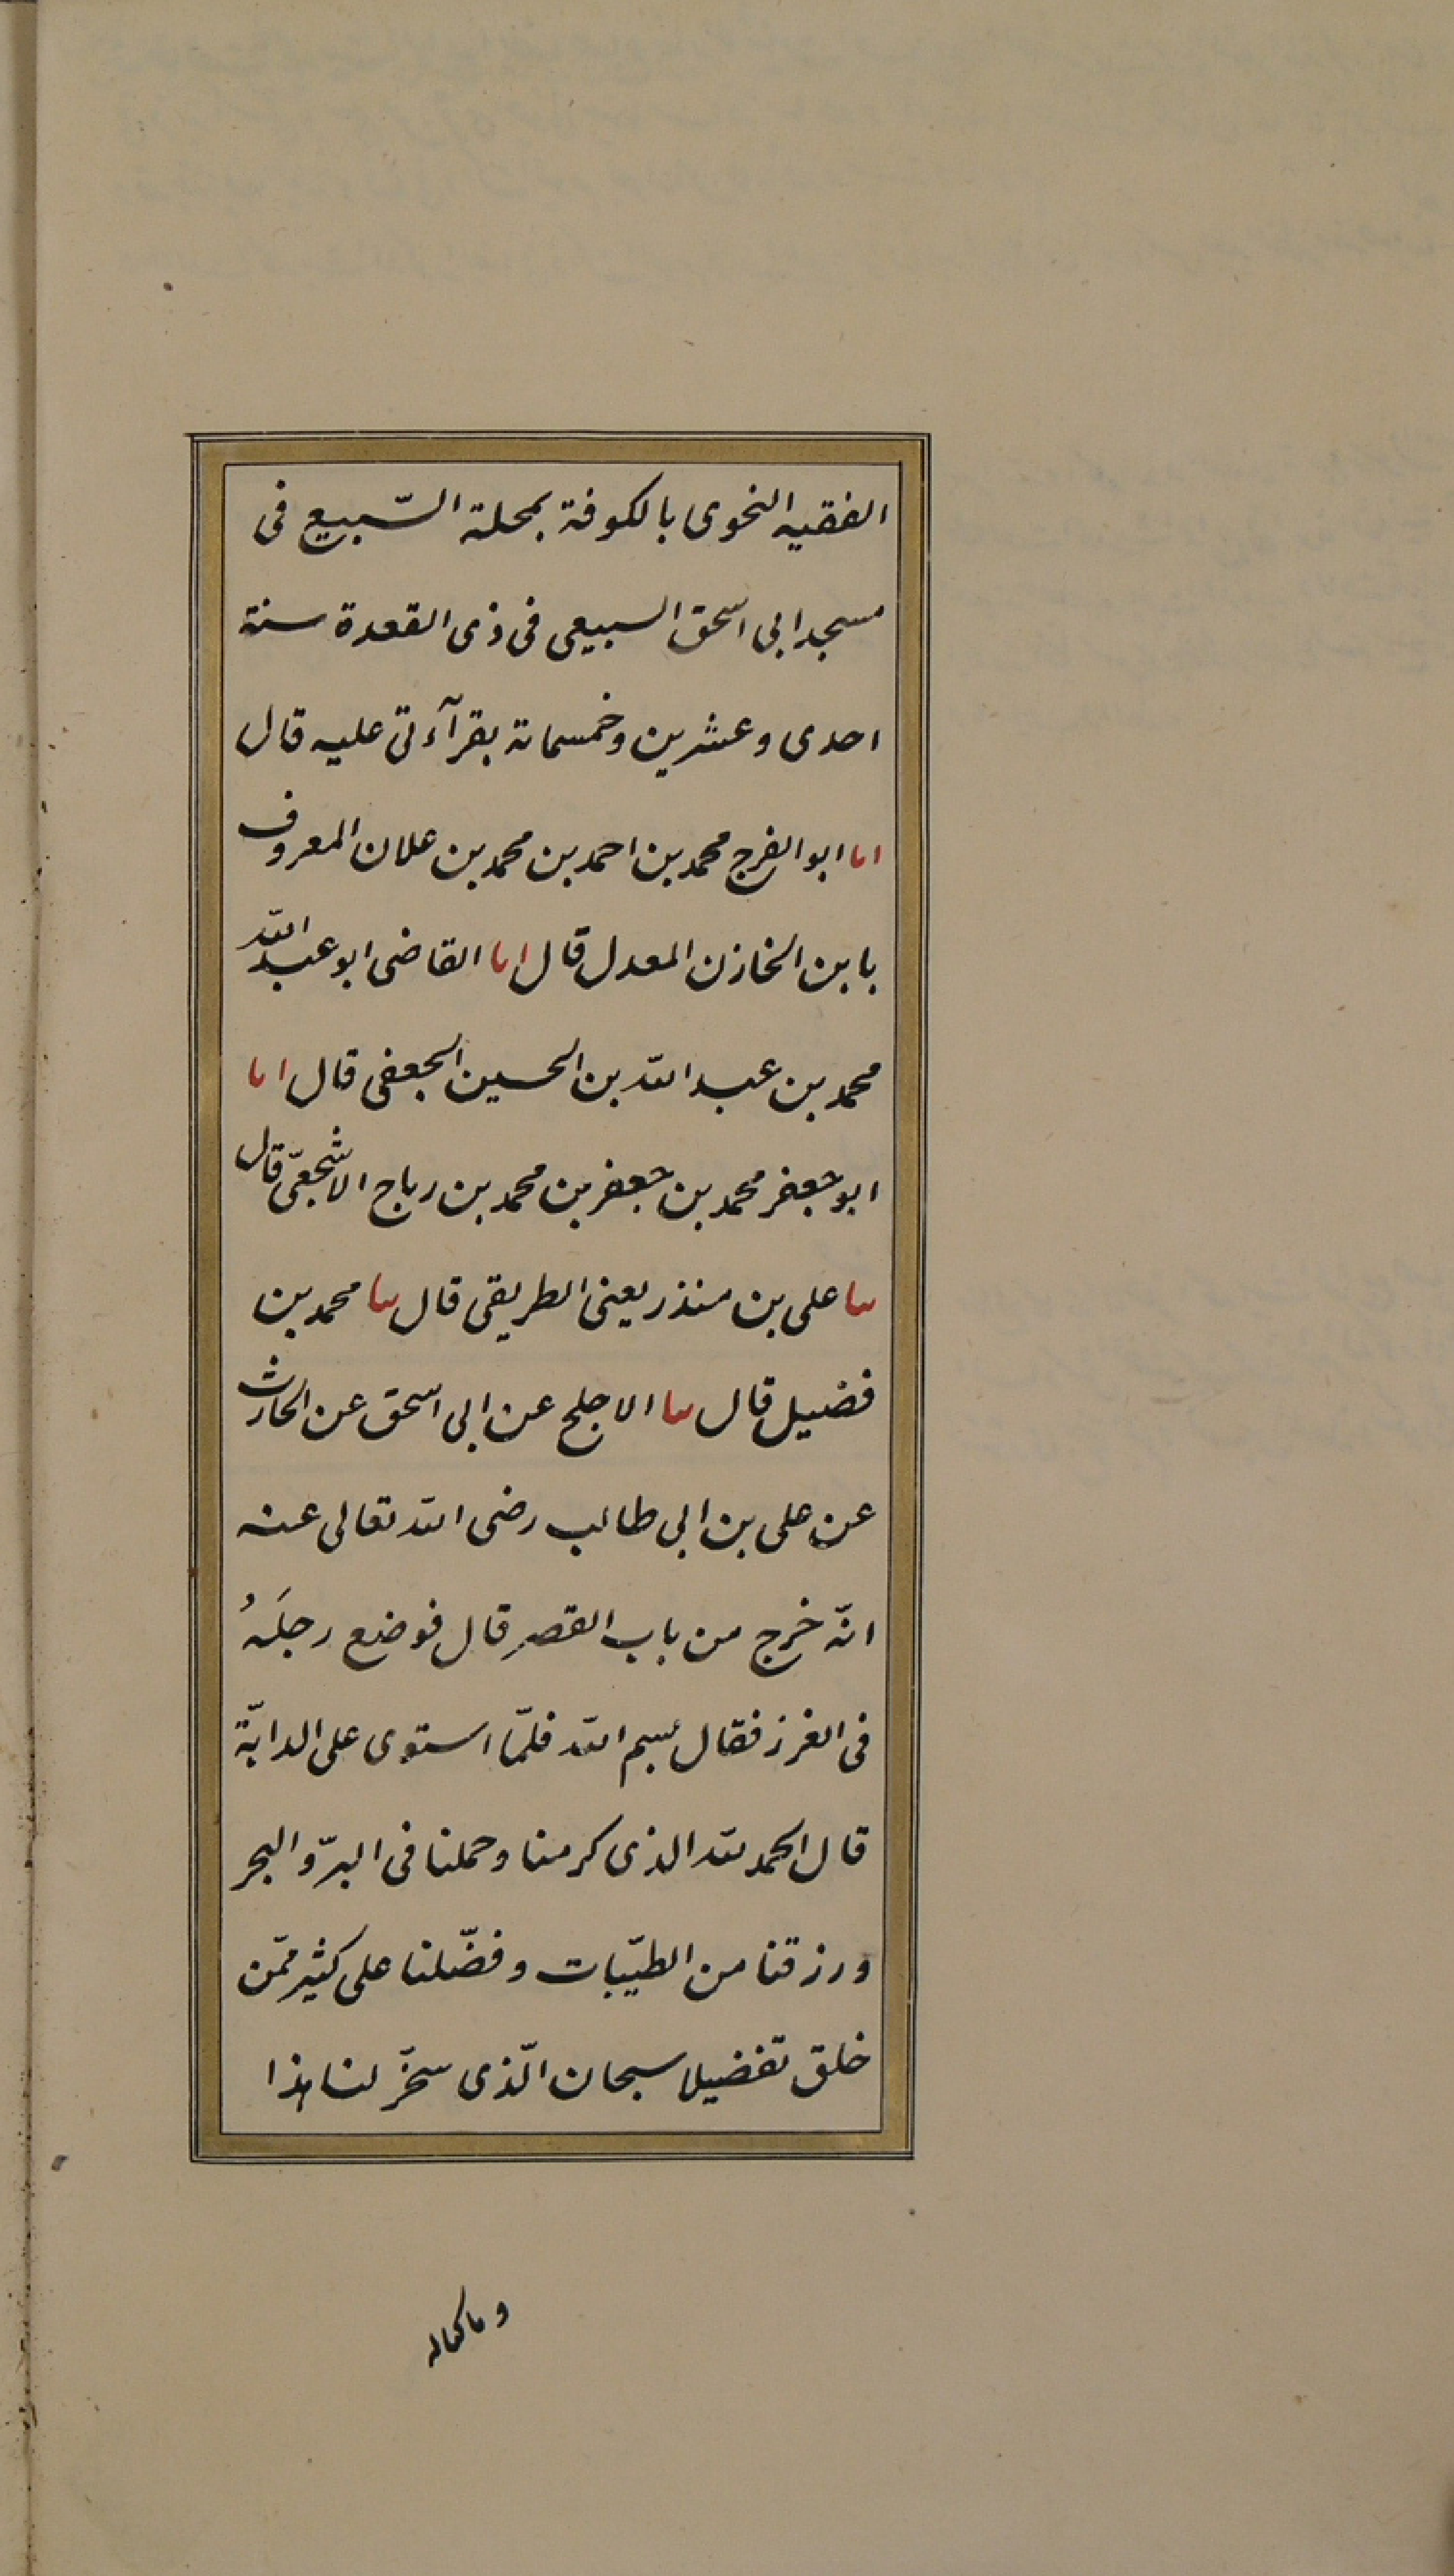 الفقيه النحوى بالكوفة بمحلة السّبيع فى
مسجد ابى اسحق السبيعى فى ذى القعدة سنة
احدى وعشرين وخمسمائة بقرآءتى عليه قال
انا ابو الفرج محمد بن احمد بن محمد بن علان المعروف
بابن الخازن المعدل قال انا القاضى ابو عبد الله
محمد بن عبد الله بن الحسين الجعفى قال انا
ابو جعفر محمد بن جعفر بن محمد بن رباح الاشجعىّ قال
ثنا على بن منذر يعنى الطريقى قال ثنا محمد بن
فضيل قال ثنا الاجلح عن ابى اسحق عن الحارث
عن على بن ابى طالب رضى الله تعالى عنه
انّه خرج من باب القصر قال فوضع رجلَهُ
فى الغرز فقال بسم الله فلمّا استوى على الدابّة
قال الحمد لله الذى كرمنا وحملنا فى البرّ والبحر
ورزقنا من الطيّبات وفضّلنا على كثير ممّن
خلق تفضيلا سبحان الّذى سخّر لنا هذا
وما كنا له